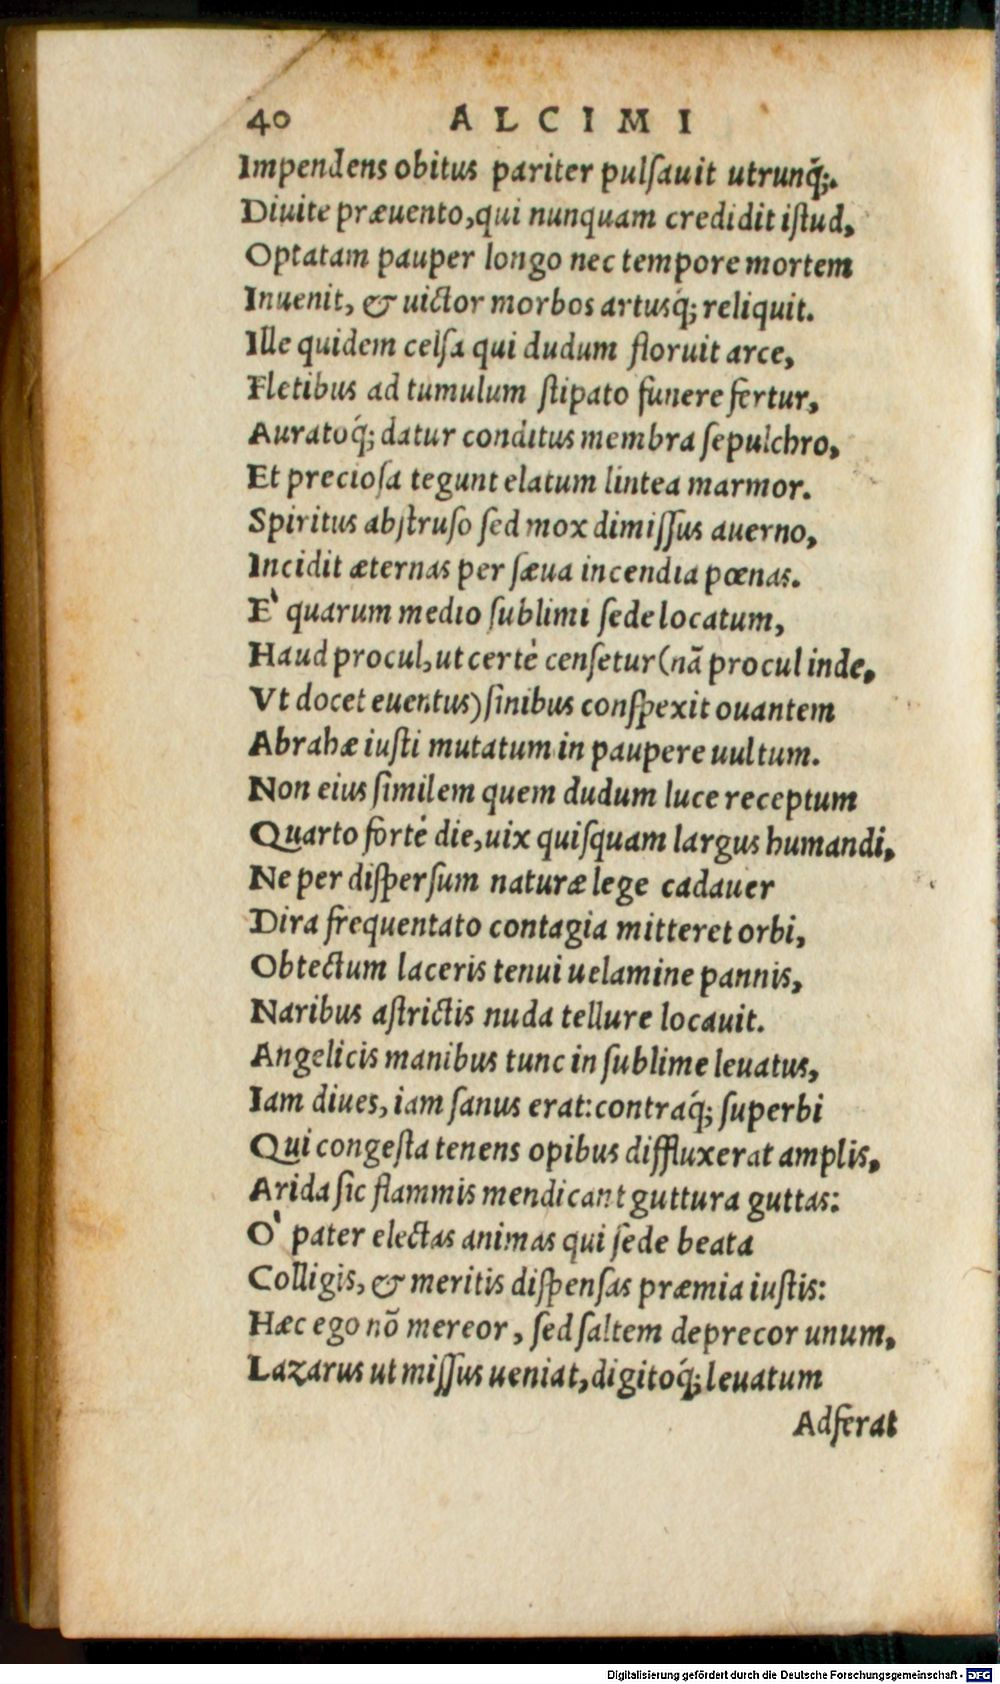 40 ALCIMI
Impendens obitus pariter pulſauit utrunq́;.
Diuite præuento, qui nunquam credidit iſtud,
Optatam pauper longo nec tempore mortem
Inuenit, & uictor morbos artusq́; reliquit.
Ille quidem celſa qui dudum floruit arce,
Fletibus ad tumulum ſtipato funere fertur,
Auratoq́; datur conditus membra ſepulchro,
Et precioſa tegunt elatum lintea marmor.
Spiritus abſtruſo ſed mox dimiſſus auerno,
Incidit æternas per ſæua incendia pœnas.
E` quarum medio ſublimi ſede locatum,
Haud procul, ut certé cenſetur (nã procul inde,
Vt docet euentus) ſinibus conſpexit ouantem
Abrahæ iuſti mutatum in paupere uultum.
Non eius ſimilem quem dudum luce receptum
Quarto forté die, uix quiſquam largus humandi,
Ne per diſperſum naturæ lege cadauer
Dira frequentato contagia mitteret orbi,
Obtectum laceris tenui uelamine pannis,
Naribus aſtrictis nuda tellure locauit.
Angelicis manibus tunc in ſublime leuatus,
Iam diues, iam ſanus erat: contraq́; ſuperbi
Qui congeſta tenens opibus diffluxerat amplis,
Arida ſic flammis mendicant guttura guttas:
O` pater electas animas qui ſede beata
Colligis, & meritis diſpenſas præmia iuſtis:
Hæc ego nõ mereor, ſed ſaltem deprecor unum,
Lazarus ut miſſus ueniat, digitoq́; leuatum
Adferat
Digitalisierung gefördert durch die Deutsche Forschungsgemeinschaft - DFG